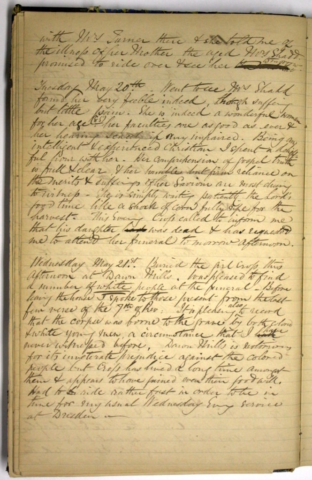 with Mrs Turner there & she told me of
the illness of her Mother the aged Mrs Shedd
promised to ride over & see her
Tuesday May 20th Went to see Mrs Shadd
found her very feeble indeed, though suffers
but little pain. She is indeed a wonderful woman
for her age, her faculties are as good as ever &
her hearing any impaired. Being an
intelligent & experienced Christian I spent a delight
ful hour with her. Her comprehension of gospel truth
is full & clear & her humble but firm reliance on
the merits & sufferings of her Saviour are most cheering
to witness. She is simply waiting patiently the Lord's
good time like a shock of corn fully ripe for the
harvest. This evening Cross called to inform me
that his daughter was dead & has requested
me to attend her funeral tomorrow afternoon.
Wednesday May 21st. Buried the girl Cross this
afternoon at Dawn Mills. Was pleased to find
a number of white people at the funeral. Before
leaving the house I spoke to those present from the last
four verses of the 7th of Rev. It is pleasing also to record
that the corpse was borne to the grave by 4 col'd
& white young men, a circumstance that I
never witnessed before. Dawn Mills is notorious
for its inveterate prejudice against the colored
people but Cross has lived a long time amongst
them & appears to have gained over their good will.
Had to ride rather fast in order to be in
time for my usual Wednesday Evng service
at Dresden